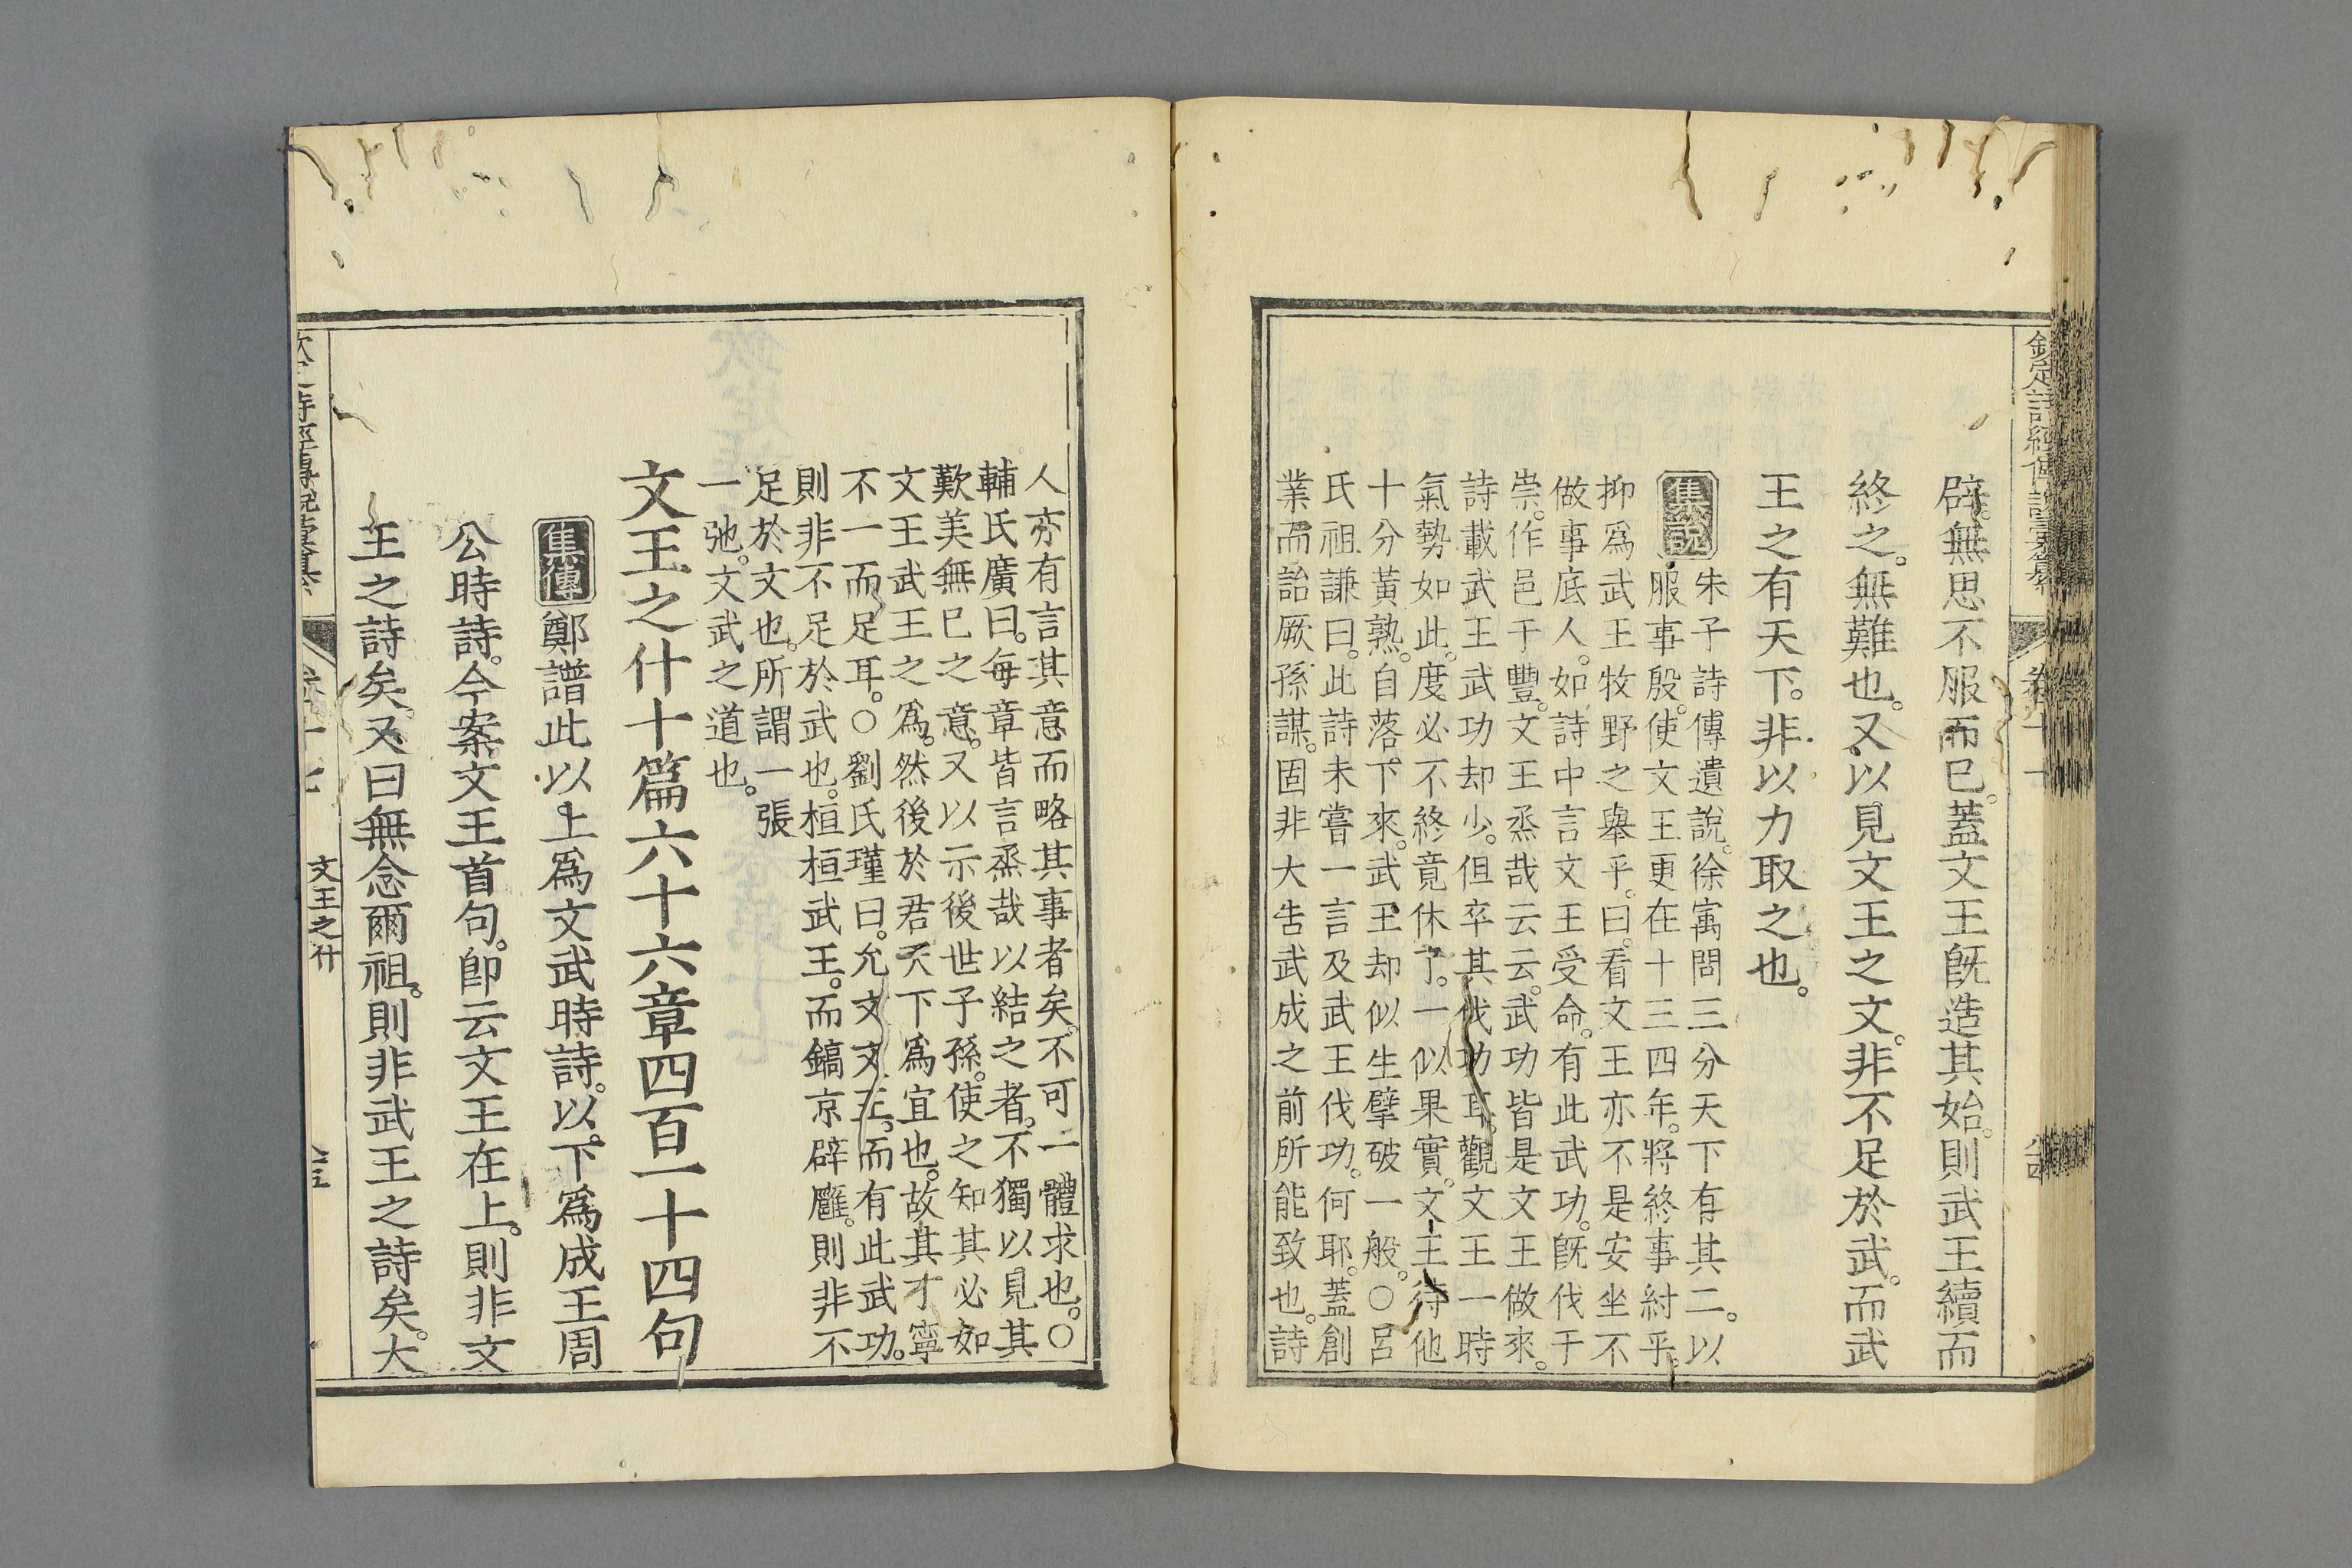 辟。無思不服而已。蓋文王旣造其始。則武王續而
終之。無難也。又以見文王之文。非不足於武。而武
王之有天下。非以力取之也。
集說
朱子詩傳遺說。徐㝢問三分天下有其二。以
服事殷。使文王更在十三四年。將終事紂乎。
抑爲武王牧野之舉乎。曰。看文王亦不是安坐不
做事底人。如詩中言文王受命。有此武功。旣伐于
崇。作邑于豐。文王烝哉云云。武功皆是文王做來。
詩載武王武功却少。但卒其伐功耳。觀文王一時
氣勢如此。度必不終竟休了。一似果實。文王待他
十分黃熟。自落下來。武王却似生擘破一般。○呂
氏祖謙曰。此詩未嘗一言及武王伐功。何耶。蓋創
業而詒厥孫謀。固非大告武成之前所能致也。詩
人亦有言其意而略其事者矣。不可一體求也。○
輔氏廣曰。每章皆言烝哉以結之者。不獨以見其
歎美無已之意。又以示後世子孫。使之知其必如
文王武王之爲。然後於君天下爲宜也。故其才寧
不一而足耳。○劉氏瑾曰。允文文王。而有此武功。
則非不足於武也。桓桓武王。而鎬京辟廱。則非不
足於文也。所謂一張
一弛。文武之道也。
文王之什十篇六十六章四百一十四句
集傳
鄭譜此以上爲文武時詩。以下爲成王周
公時詩。今案文王首句。卽云文王在上。則非文
王之詩矣。又曰無念爾祖。則非武王之詩矣。大
文王之什